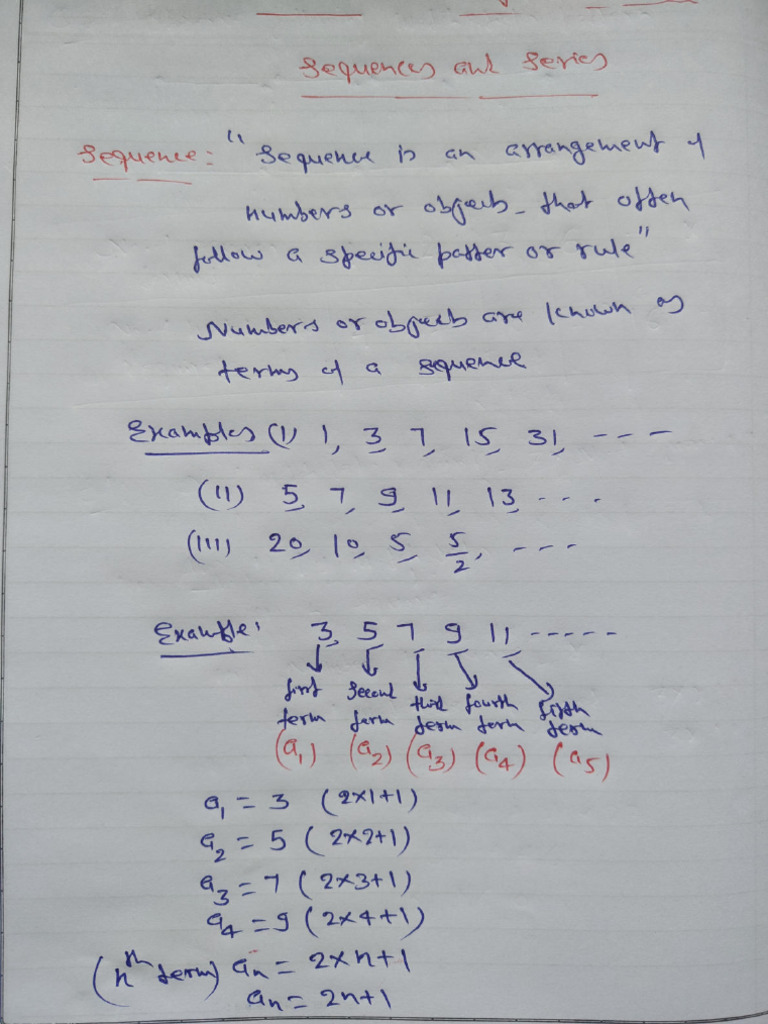 Sequences and Series
Sequence: "Sequence is an arrangement of
numbers or objects that often
follow a specific patter or rule"
Numbers or objects are known as
terms of a sequence
Examples (I) 1, 3, 7, 15, 31, ---
(II) 5, 7, 9, 11, 13, ...
(III) 20, 10, 5, 5/2, ---
Example: 3, 5, 7, 9, 11 -----
first second third fourth fifth
term term term term term
(a₁) (a₂) (a₃) (a₄) (a₅)
a₁ = 3 (2×1+1)
a₂ = 5 (2×2+1)
a₃ = 7 (2×3+1)
a₄ = 9 (2×4+1)
(nᵗʰ term) aₙ = 2×n+1
aₙ = 2n+1